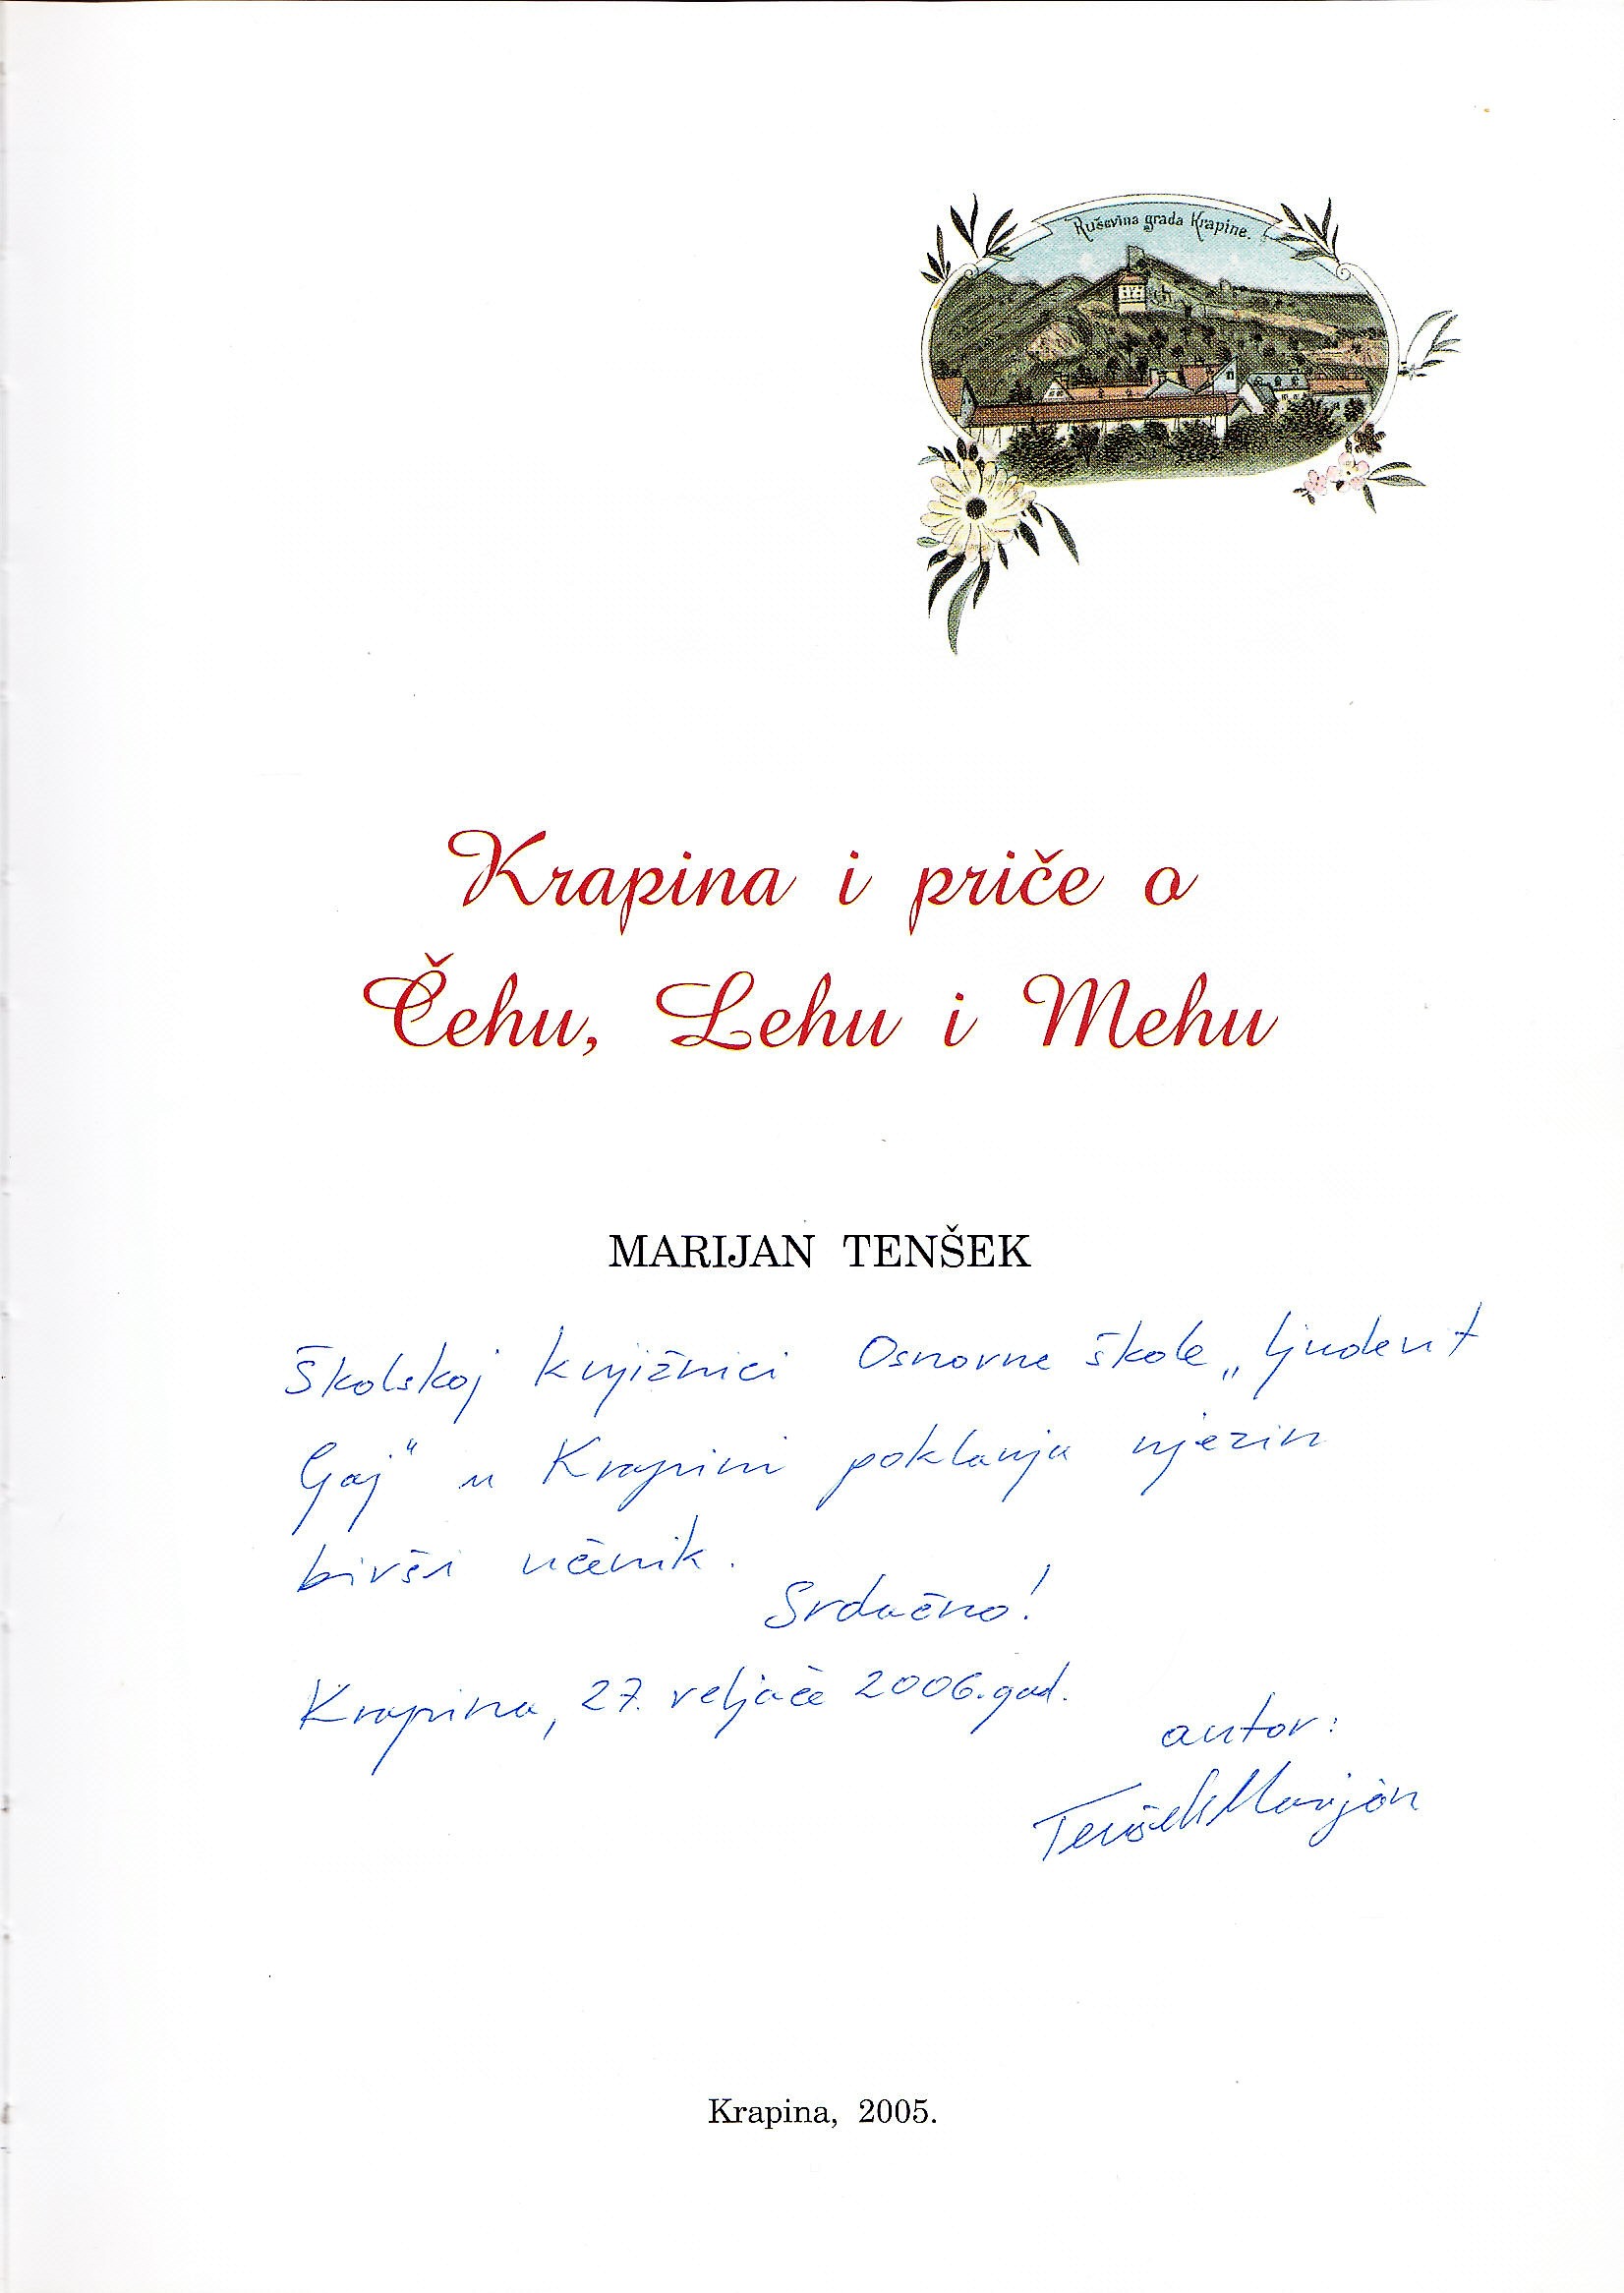 Ruševina grada Krapine.
Krapina i priče o
Čehu, Lehu i Mehu
MARIJAN TENŠEK
Školskoj knjižnici Osnovne škole „Ljudevit
Gaj" u Krapini poklanja njezin
bivši učenik.
Srdačno!
Krapina, 27. veljače 2006. god.
autor:
Tenšek Marijan
Krapina, 2005.